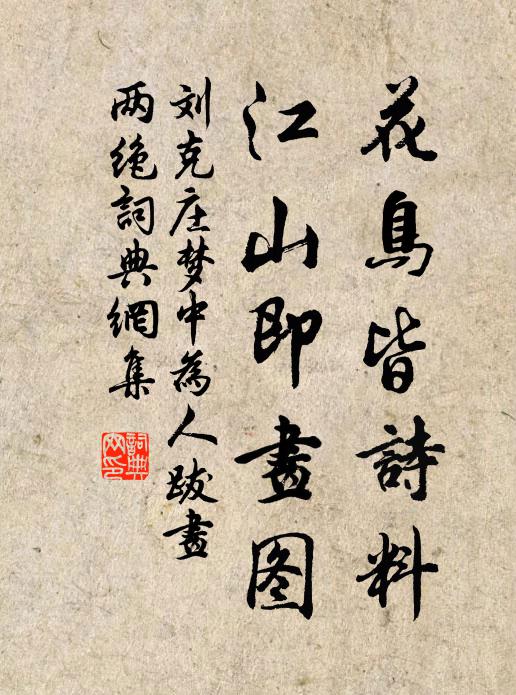 花鳥皆詩料
江山即畫图
刘克庄梦中為人跋畫
两绝詞典網集
詞典网印